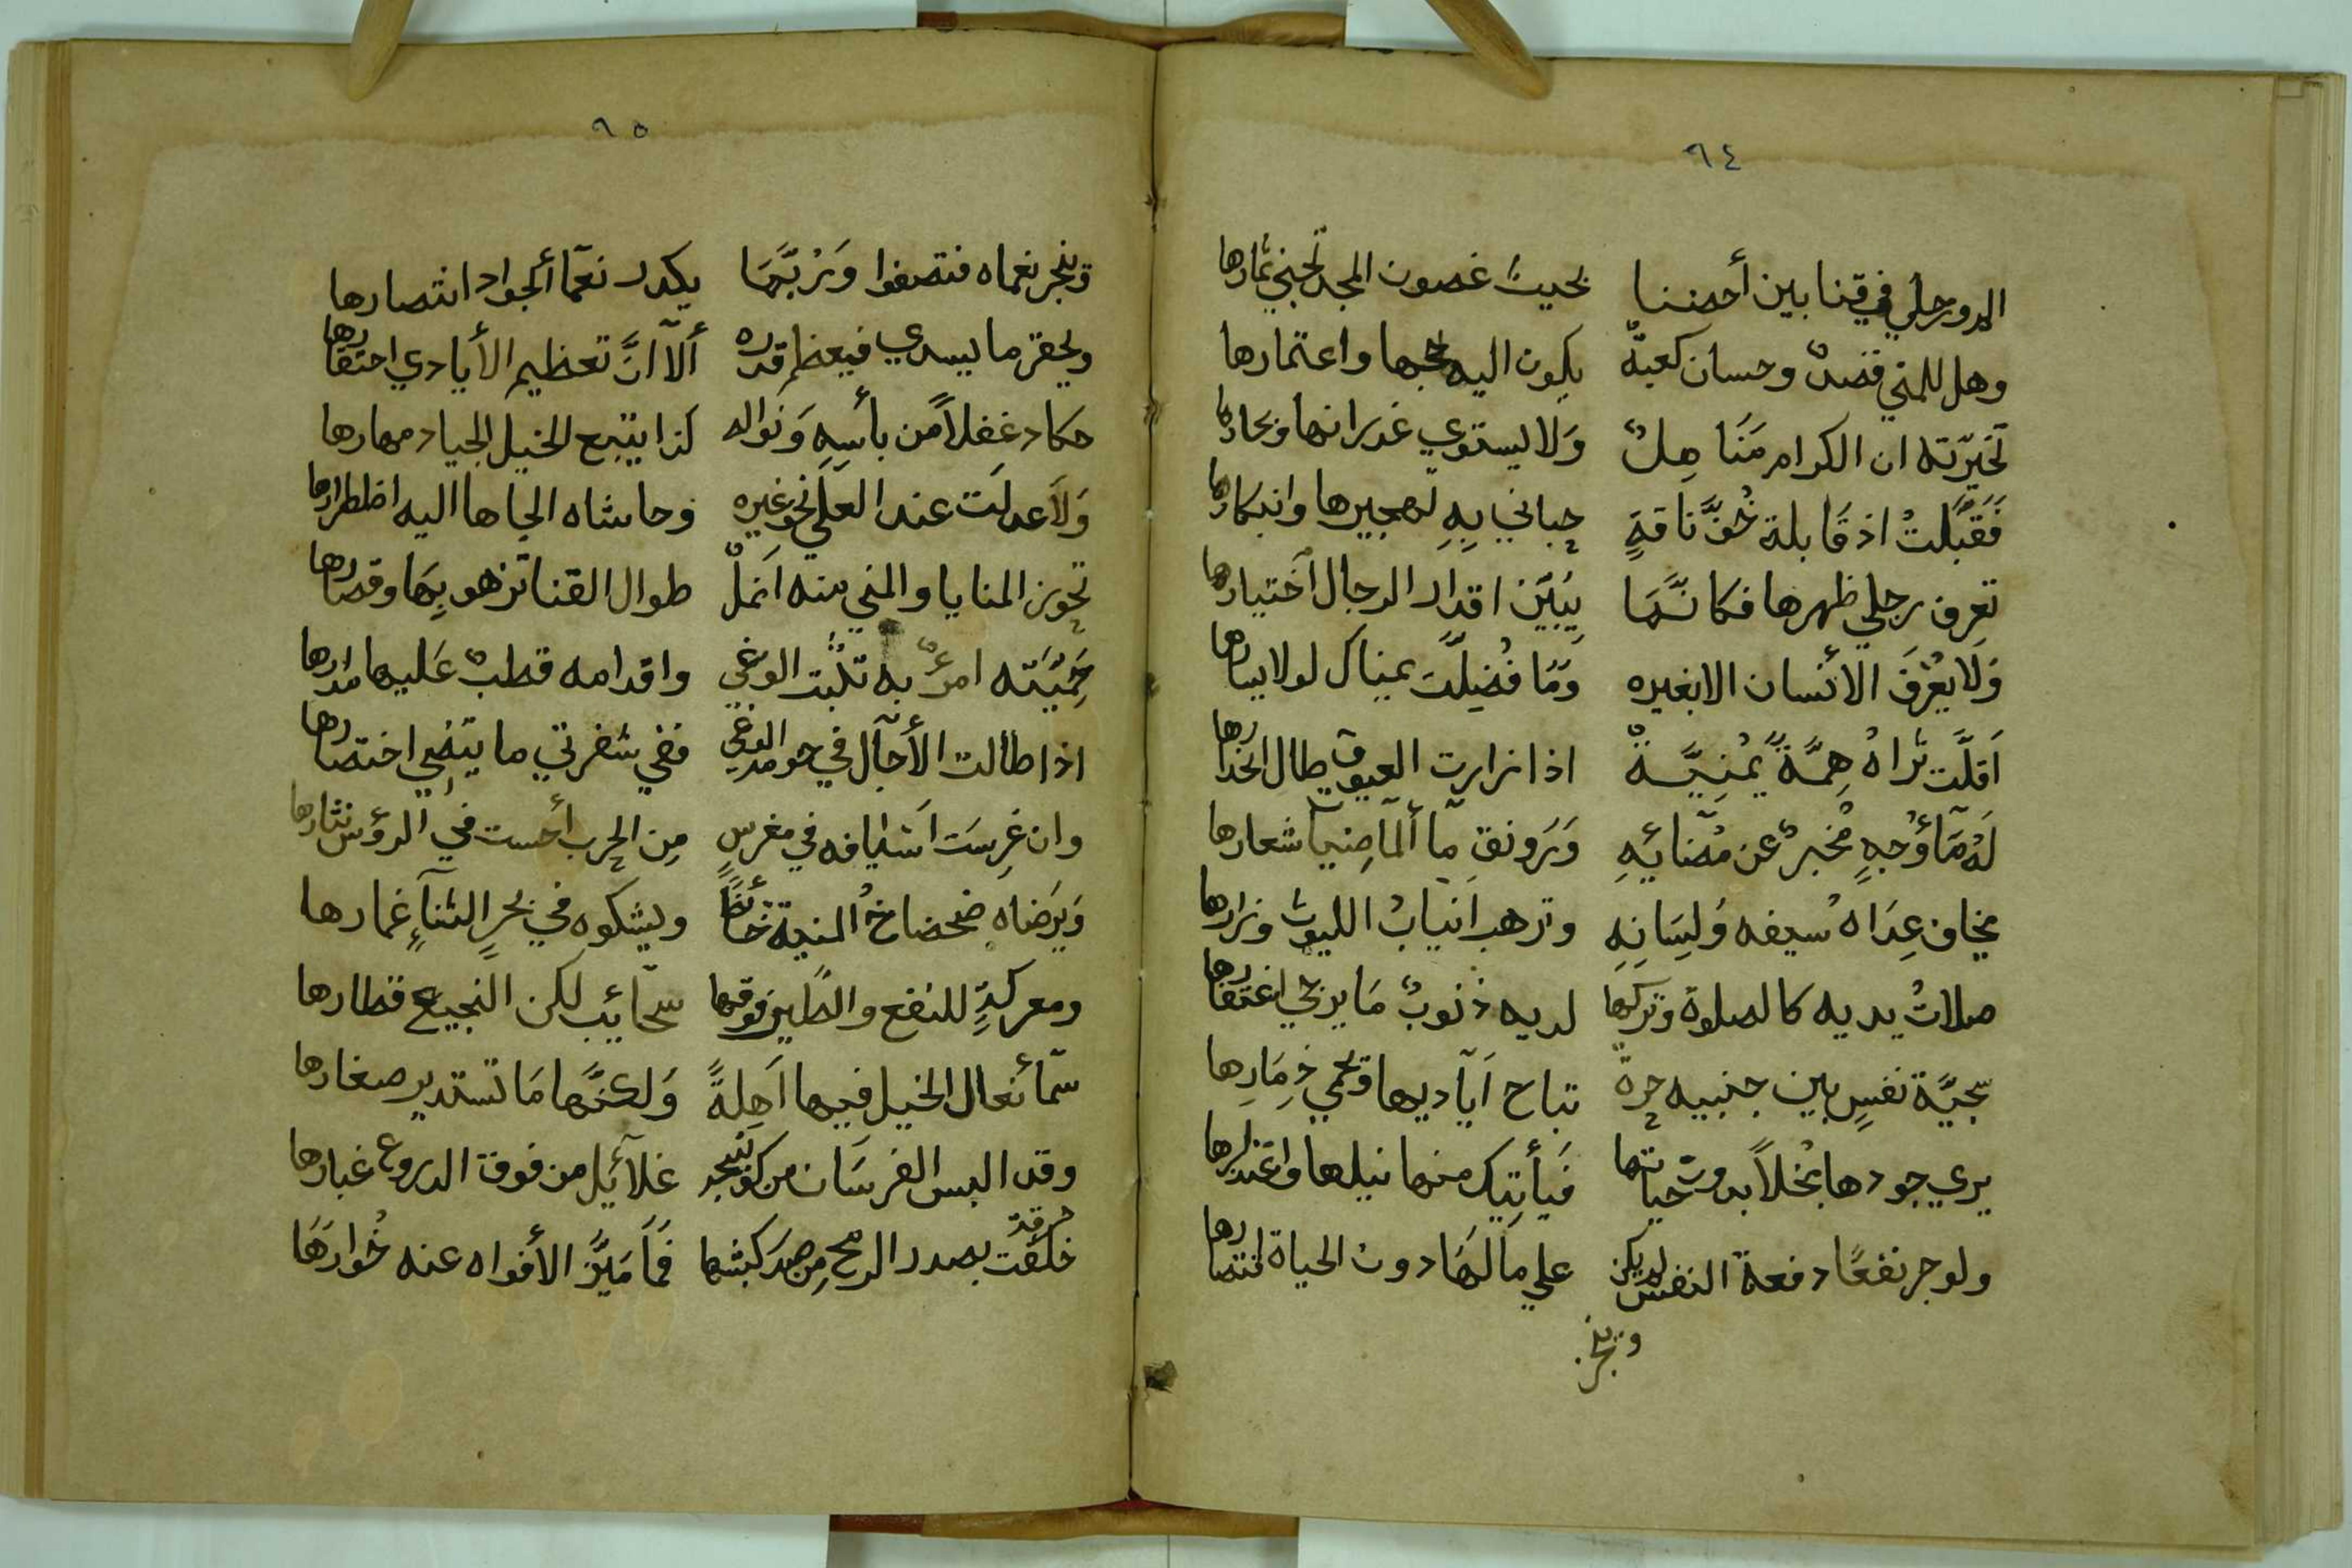 ٩٤
الدورحلي في قنا بين أحضنا بحيث غصون المجد تجني ثمارها
وهل للمني قصدٌ وحسان كعبةٌ يكون اليه حجها واعتمارها
تخيّرته ان الكرام مَنَاهِلٌ وَلا يستوي غدرانها وبحارها
فَقَبّلتُ اذ قَابلة خُفَّ ناقةٍ حباني بِهِ تهجيرها وابتكارها
تعرف رجلي ظهرها فكانَّمَا يُبَيّن اقدار الرجال اَختيارها
وَلَا يعْرَفَ الأنسان الا بغيره وَمَا فُضِلَّت يمناك لولا يسارها
اَقلَّت ثرَاهُ هِمَّةً يَمْنِيَّةٌ اذا زارت العيوق طال انحدارها
لَهُ مَآؤُجهٍ مُخبرٌ عن مُضَائهِ وَرَونق مآ ألمآضِيآ شعارها
يخاف عِدَاهُ سيفه وُلِسَانِهِ وترهب اَنيابُ الليوث وزارها
صلاتُ يديه كالصلوة وتركها لديه ذنوبٌ مَا يرجي اغتفارها
سجيَّة نفسٍ بين جنبيه حرة تباح اَيآديها وتحمي ذِمَارِها
يري جودها بخلاً بموت حياتها فيأتيك منها نيلها واعتذارها
ولو جر نفعًا دفعة النفس لم يكن علي مالَهَا دون الحياة اختصارها
وينجز
٩٥
وينجز نعماه فتصفوا وَرُبَّمَا يكدر نعمآ ألجواد انتصارها
ويحقر ما يسدي فيعظم قدره ألآ انَّ تعظيم الأيادي احتقارها
حكاد غفلاً من بأسِهِ وَنواله كذا يتبع الخيل الجياد مهارها
وَلاَ عدلَت عند العلي نحو غيره وحاشاه الجاها اليه اضطرارها
تحوز المنايا والمني منه اَنمَلٌ طوال القنا تزهو بِهَا وقصارها
حَمِيّتَه امرٌ به تثبُت الوغي واقدامه قطبٌ عَليها مدارها
اذا طالت الأجآل في حومة الوغي ففي شفرتي ما ينتضي اختصارها
وان غرِسَت اَسْيافه في مغرسٍ مِن الحرب أحست في الرؤس نثارها
وَيرَضاه ضحضاحُ المنية خَائضًا ويشكوه في بحرِ الثنآءِ غمارها
ومعركةٍ للنقع والطَير فوقها سحآئب لكن النجيع قطارها
سمآ نعال الخيل فيها اَهِلةً وَلكنَّها مَا تستدير صغارها
وقد البس الفرسَان من كونسجد غلآئِل من فوق الدروع غبارها
خَلَقت بصدر الرمح مِن صدر كبشها فرقة فمَا مَيَّز الأفواه عنه خُوارَهَا